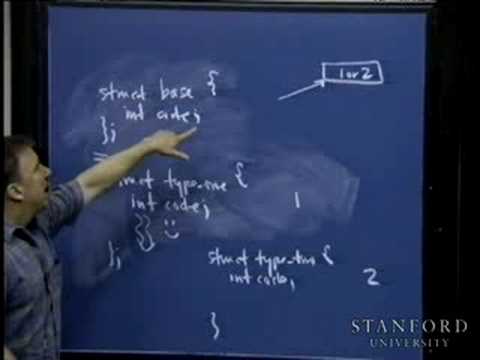 struct base {
int code;
};
1 or 2
struct type-one {
int code;
}} :)
};
1
struct type-two {
int code;
}
2
STANFORD
UNIVERSITY